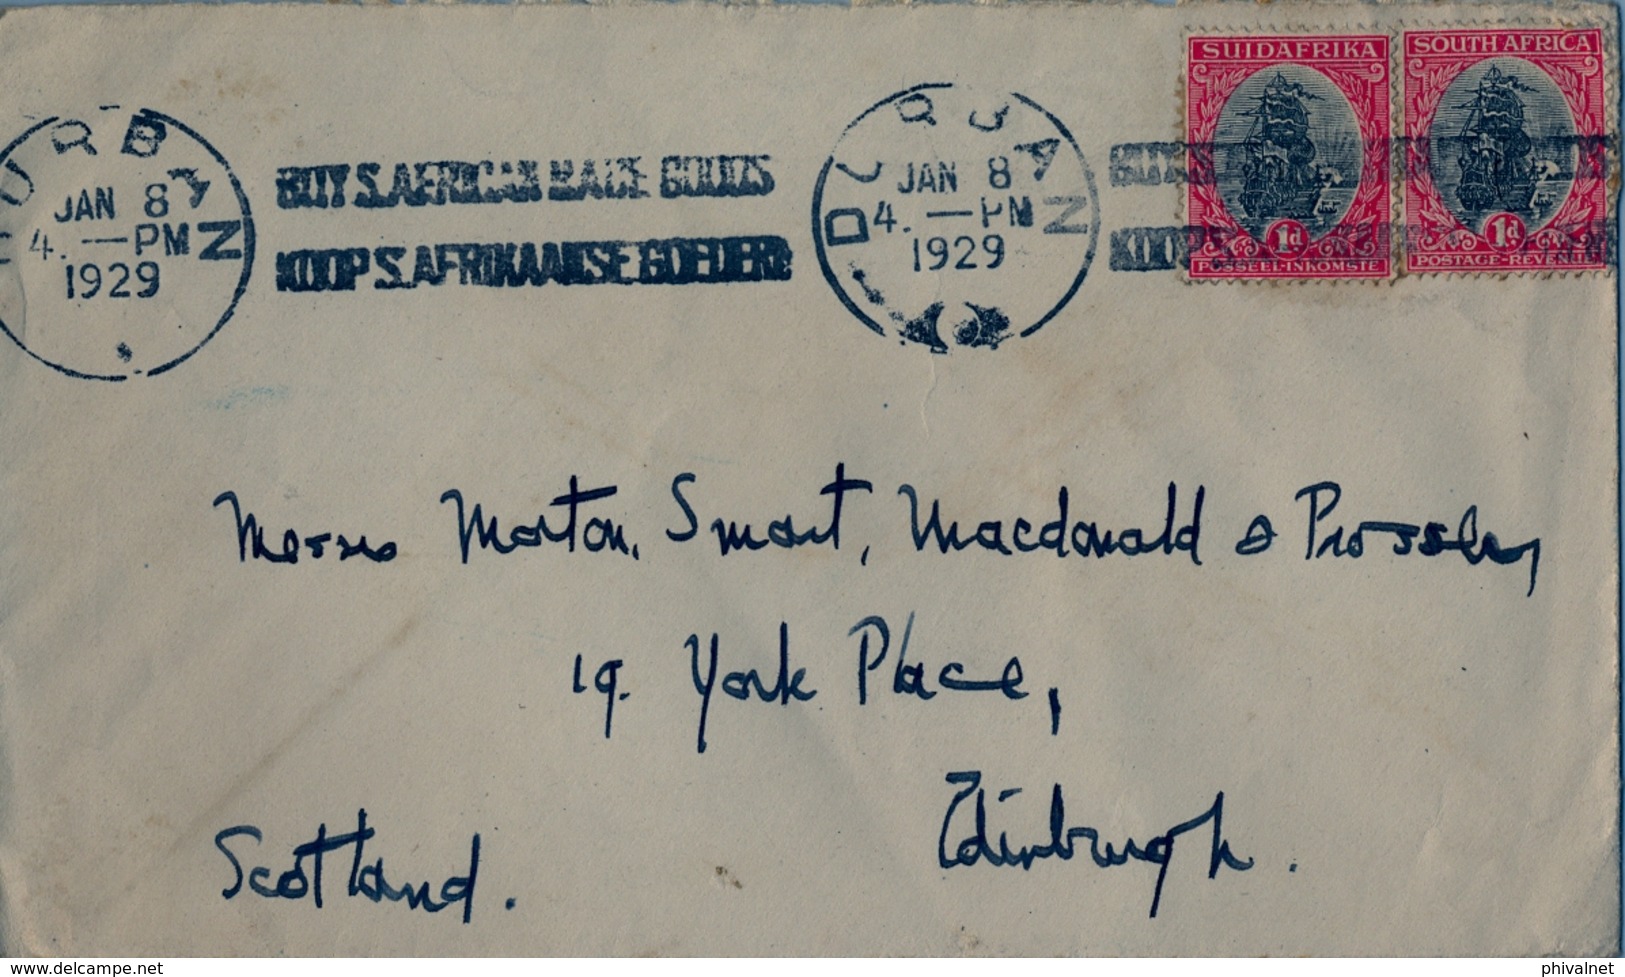 SUIDAFRIKA
SOUTH AFRICA
1d
1d
POSSEEL-INKOMSTE
POSTAGE-REVENUE
DURBAN
JAN 8
4. — PM
1929
BUY S. AFRICAN MADE GOODS
KOOP S. AFRIKAANSE GOEDERE
DURBAN
JAN 8
4. — PM
1929
BUY S.
KOOP S.
Messrs Morton, Smart, Macdonald & Prosser,
19. York Place,
Edinburgh.
Scotland.
www.delcampe.net
philvalnet